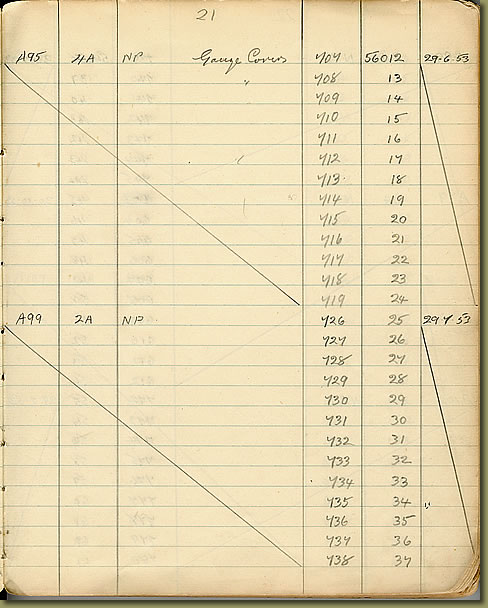 21
A95 2A NP Gauge Covers 707 56012 29-6-53
" 708 13
709 14
710 15
711 16
" 712 17
713 18
714 19
715 20
716 21
717 22
718 23
719 24
A99 2A NP 726 25 29 7 53
727 26
728 27
729 28
730 29
731 30
732 31
733 32
734 33
735 34 "
736 35
737 36
738 37